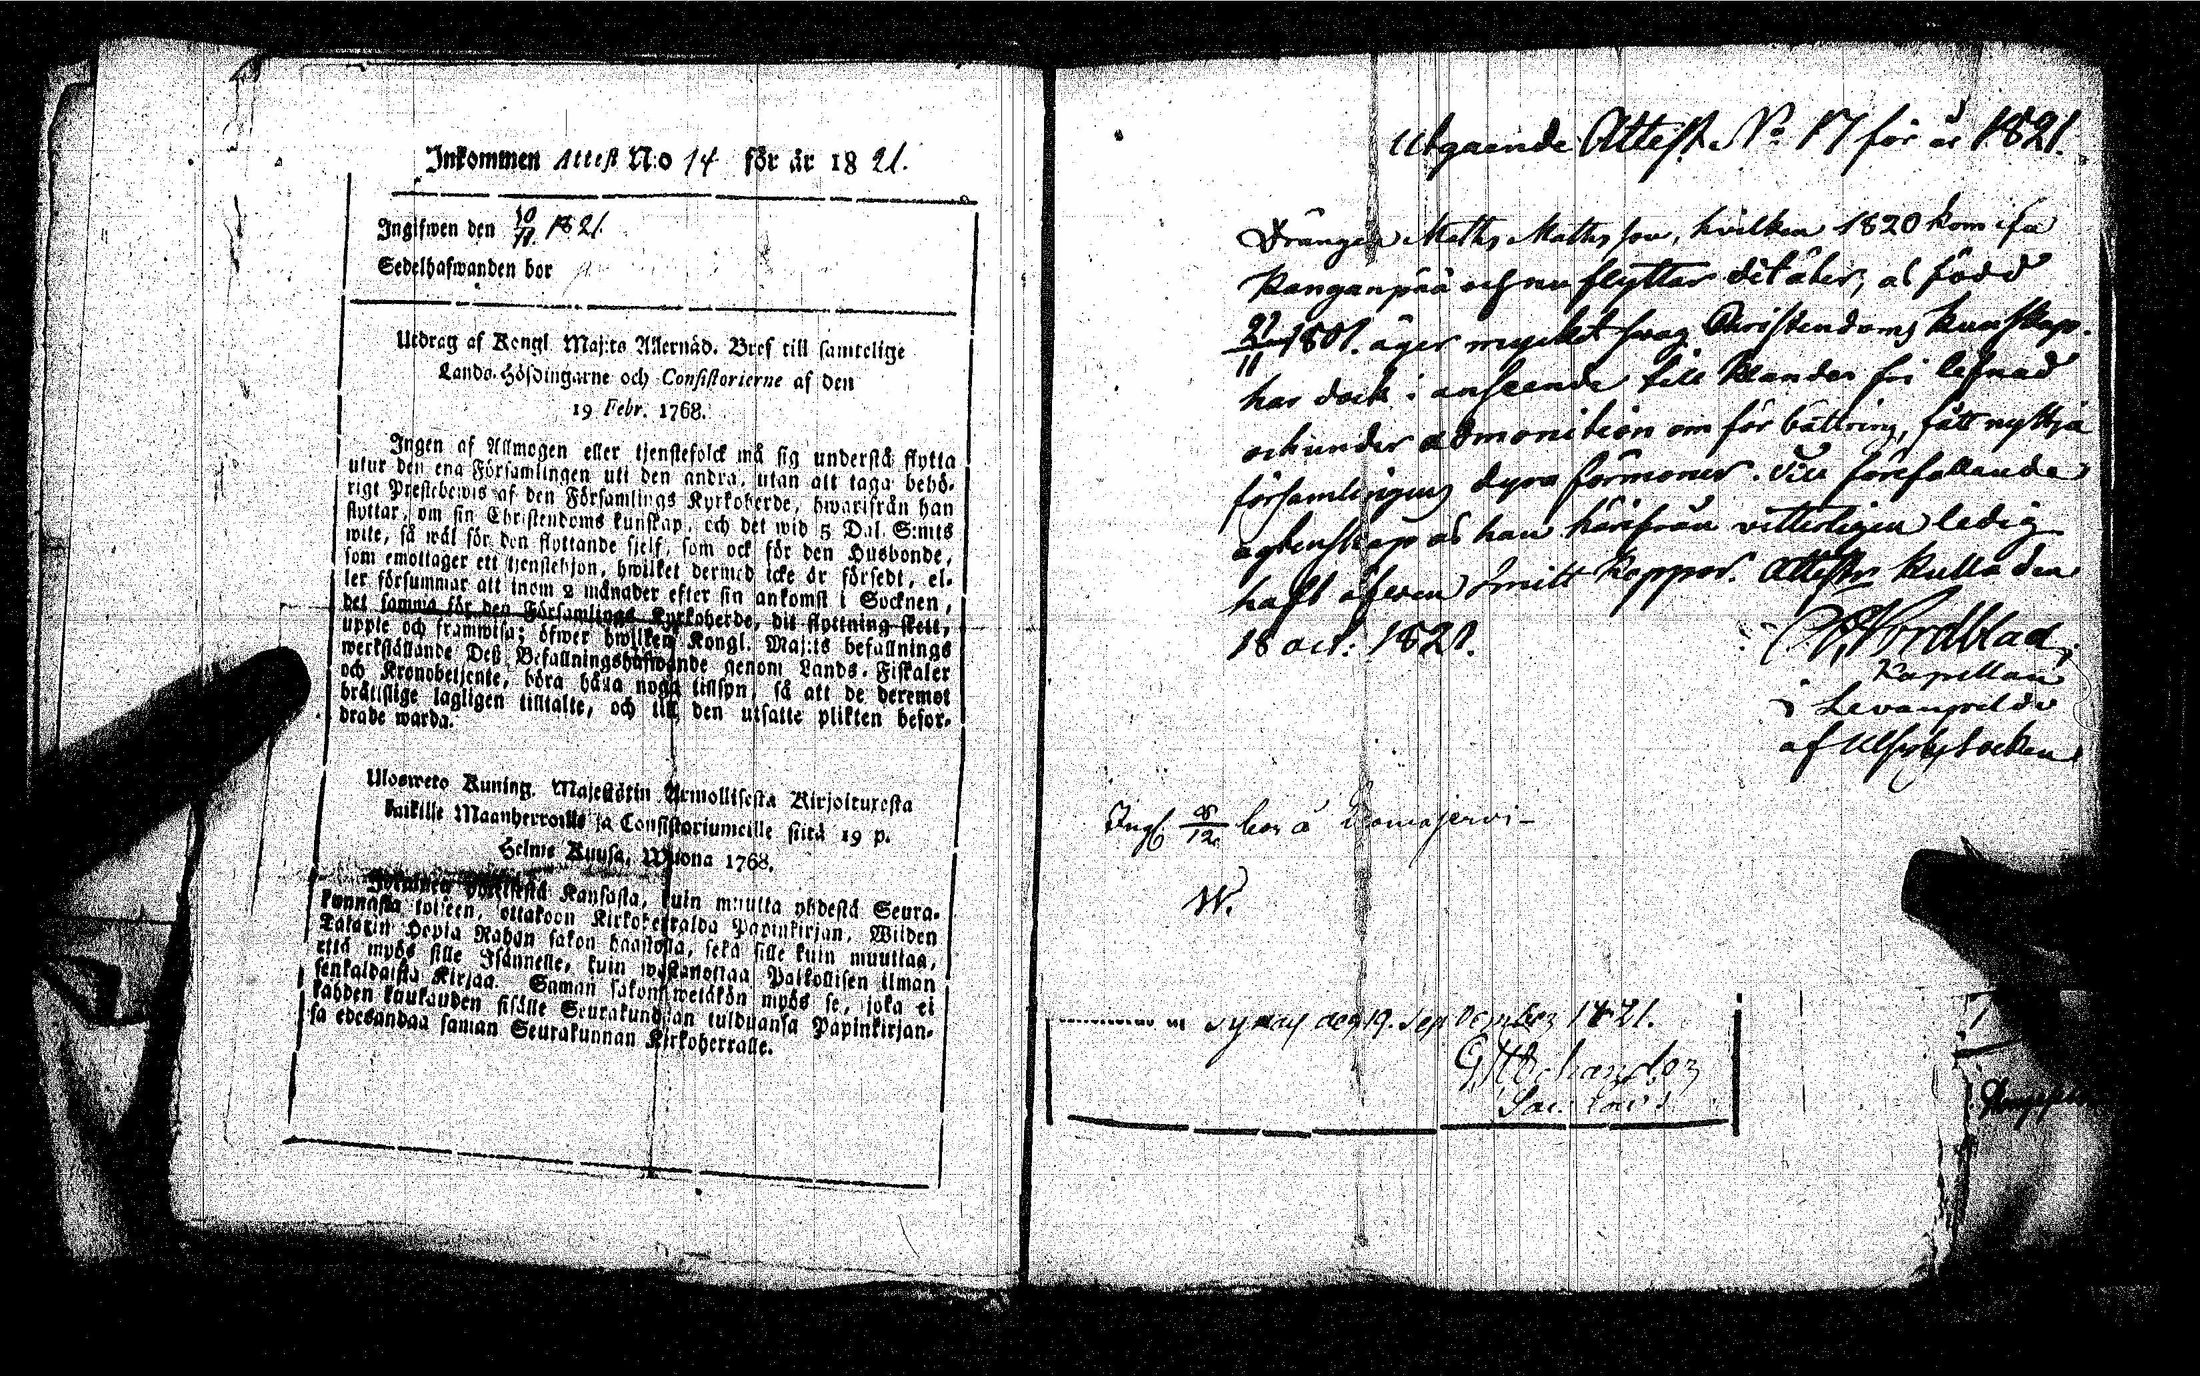 Inkommen Attest N:o 14 för år 1821.
Ingifwen den 10/11. 1821.
Sedelhafwanden bor
Utdrag af Kongl Maj:ts Allernåd. Bref till samtelige
Lands-Höfdingarne och Consistorierne af den
19 Febr. 1768.
Ingen af Allmogen eller tjenstefolck må sig understå flytta
utur den ena Församlingen uti den andra, utan att taga behö-
rigt Prestebewis af den Församlings Kyrkoherde, hwarifrån han
flyttar, om sin Christendoms kunskap, och det wid 5 Dal. S:mts
wite, så wäl för den flyttande sjelf, som ock för den Husbonde,
som emottager ett tjenstehjon, hwilket dermed icke är försedt, el-
ler försummar att inom 2 månader efter sin ankomst i Socknen,
det samma för den Församlings Kyrkoherde, dit flyttning skett,
uppte och framwisa; öfwer hwilken Kongl. Maj:ts befallnings
werkställande Deß Befallningshafwande genom Lands-Fiskaler
och Kronobetjente, böra hafa noga tillsyn, så att de deremot
bråttslige lagligen tilltalte, och till den utsatte plikten befor-
drade warda.
Ulosweto Kuning. Majestätin Armollisesta Kirjoituxesta
kaikille Maanherroille ja Consistoriumeille siitä 19 p.
Helme Kuusa, Wuona 1768.
Kansasta, kuin muutta yhdestä Seura-
kunnasta toiseen, ottakoon Kirkoherralda Papinkirjan, Wiiden
Talarin Hopia Rahan sakon haastolla, sekä sille kuin muuttaa,
että myös sille Isännelle, kuin wastanottaa Palkollisen ilman
senkaldaista Kirjaa. Saman sakon wetäkön myös se, joka ei
kahden kuukauden sisälle Seurakundaan tulduansa Papinkirjan-
sa edesandaa saman Seurakunnan Kirkoherralle.
Utgaende Attest No 17 för år 1821.
Drängen Matts Mattsson, hvilken 1820 kom ifrå
Kanganpää och nu flyttar dit åter, är född
27/11 1801. äger mycket swag Christendoms kunskap.
har dock i anseende till klander fri lefnad
och under admonition om förbättring, fått nyttja
församlingens dyra förmoner. Till förefallande
agtenskap äs han härifrån vitterligen ledig
haft äfwen Smitt Koppor. Attestr Kulla den
18 oct: 1821.
Nordblad,
Kapellan
i
af Ulfsby Socken
Ingf. 8/12. bor å
W.
den 19. September 1821.